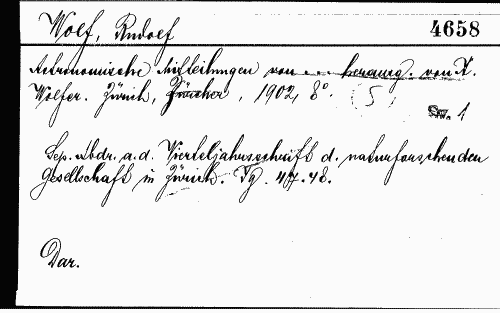 Wolf, Rudolf 4658
Astronomische Mitteilungen von ... herausg. von A.
Wolfer. Zürich, Zürcher, 1902, 8°. (S)
Sw. 1
Sep. Abdr. a. d. Vierteljahrsschrift d. naturforschenden
Gesellschaft in Zürich. Jg. 47.48.
Dar.